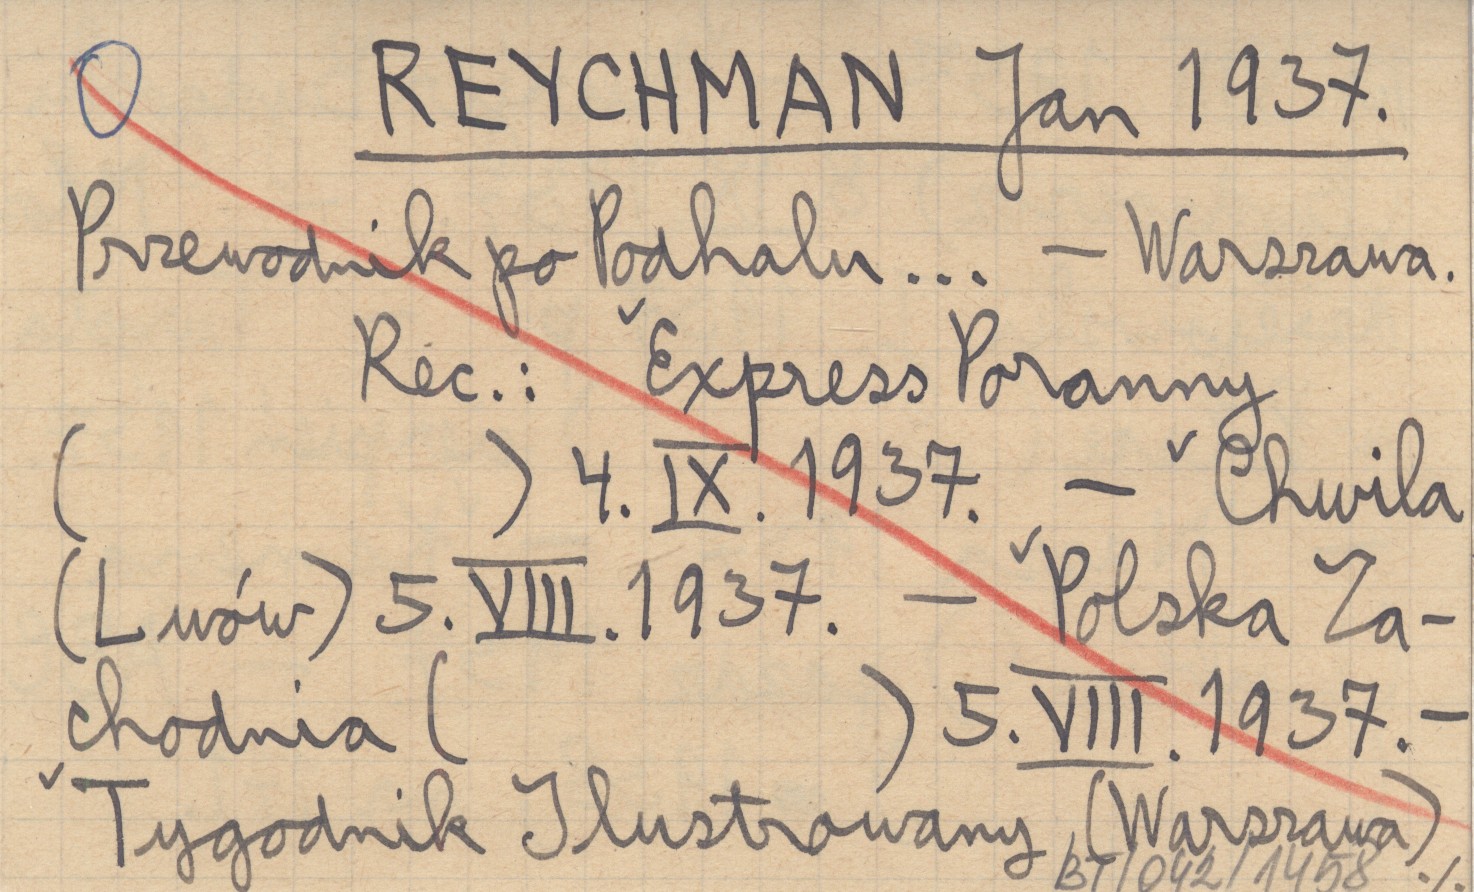 REYCHMAN Jan 1937.
Przewodnik po Podhalu... – Warszawa.
Rec.: ˇExpress Poranny
( ) 4.IX.1937. – ˇChwila
(Lwów) 5.VIII.1937. – ˇPolska Za-
chodnia ( ) 5.VIII.1937. –
ˇTygodnik Ilustrowany (Warszawa)
BT/042/1458 ./.